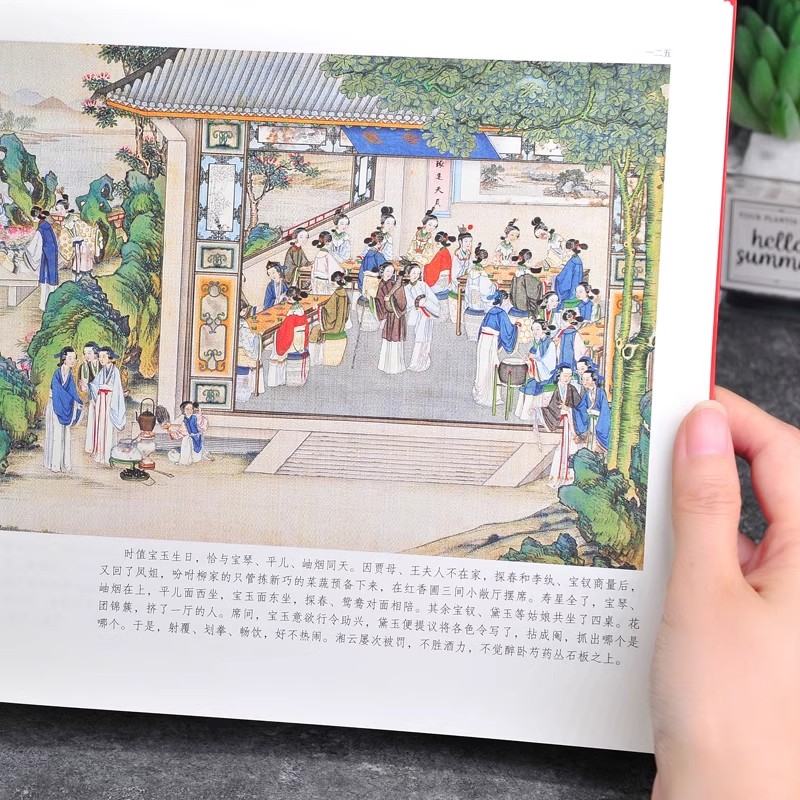 一二五
时值宝玉生日，恰与宝琴、平儿、岫烟同天。因贾母、王夫人不在家，探春和李纨、宝钗商量后，
又回了凤姐，吩咐柳家的只管拣新巧的菜蔬预备下来，在红香圃三间小敞厅摆席。寿星全了，宝琴、
岫烟在上，平儿面西坐，宝玉面东坐，探春、鸳鸯对面相陪。其余宝钗、黛玉等姑娘共坐了四桌。花
团锦簇，挤了一厅的人。席间，宝玉意欲行令助兴，黛玉便提议将各色令写了，拈成阄，抓出哪个是
哪个。于是，射覆、划拳、畅饮，好不热闹。湘云屡次被罚，不胜酒力，不觉醉卧芍药丛石板之上。
hello
summ